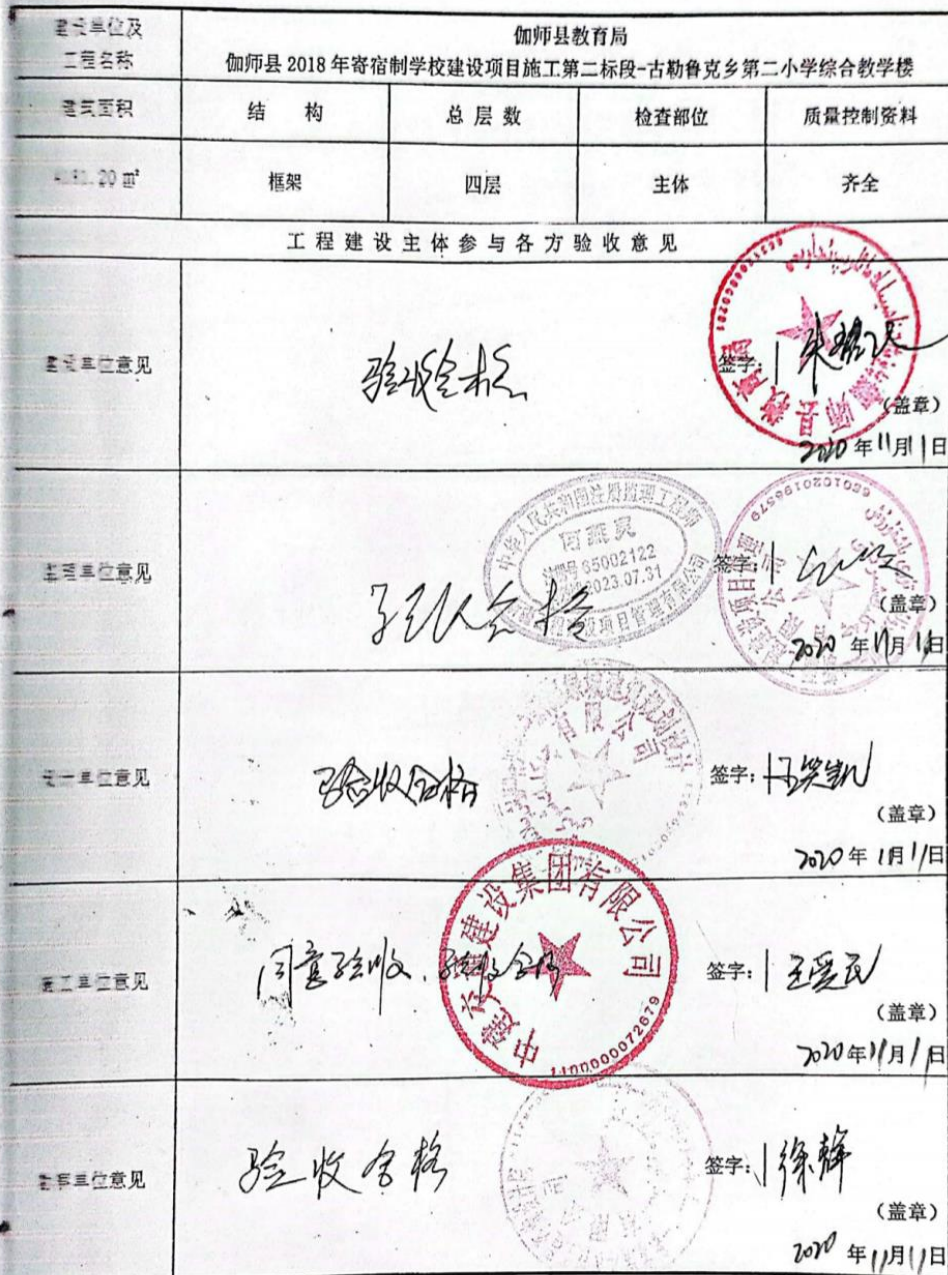 建设单位及
工程名称
伽师县教育局
伽师县 2018 年寄宿制学校建设项目施工第二标段-古勒鲁克乡第二小学综合教学楼
建筑面积 结 构 总 层 数 检查部位 质量控制资料
.20 m² 框架 四层 主体 齐全
工 程 建 设 主 体 参 与 各 方 验 收 意 见
建设单位意见
验收合格
签字:
伽师县教育局
6531270000201
(盖章)
2020 年 11月 1日
监理单位意见
中华人民共和国注册监理工程师
注册号 65002122
2023.07.31
建设项目管理有限公司
签字:
6501020196579
(盖章)
2020 年 11月 1日
设计单位意见
验收合格
有限公司
签字:
(盖章)
2020 年 11月 1日
施工单位意见
同意验收、验收合格
建设集团有限公司
1100000072679
签字: 王爱民
(盖章)
2020 年 11月 1日
勘察单位意见
验收合格
签字: 徐辉
(盖章)
2020 年 11月 1日